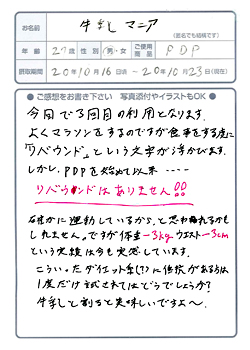 お名前 牛乳し マニア
(匿名でも結構です)
年齢 27歳 性別 男・女 ご使用商品 PDP
摂取期間 20年10月16日頃 ～20年10月23日(現在)
●ご感想をお書き下さい 写真添付やイラストもOK●
今回で3回目の利用となります。
よくマラソンをするのですが食事をする度に
「リバウンド」という文字が浮かびます。
しかし、PDPを始めて以来‥‥
リバウンドはありません!!
確かに運動しているから、と思われるかも
しれません。ですが体重-3kg ウエスト-3cm
という実績は今も実感しています。
こういったダイエット系(?)に抵抗がある方は
1度だけ試されてはどうでしょうか?
牛乳しと割ると美味しいですよ～。